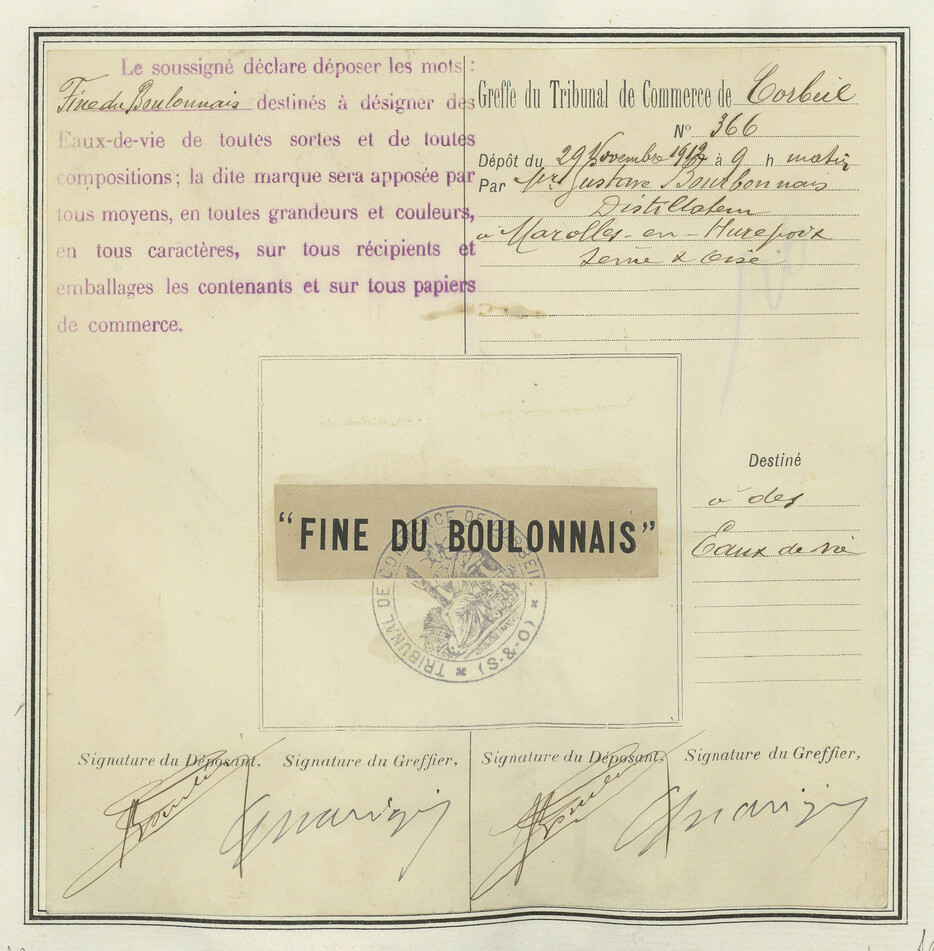 Le soussigné déclare déposer les mots :
Fine du Boulonnais destinés à désigner des
Eaux-de-vie de toutes sortes et de toutes
compositions; la dite marque sera apposée par
tous moyens, en toutes grandeurs et couleurs,
en tous caractères, sur tous récipients et
emballages les contenants et sur tous papiers
de commerce.
Greffe du Tribunal de Commerce de Corbeil
N° 366
Dépôt du 29 Novembre à 9 h matin
Par Mr Gustave Bourbonnais
Distillateur
à Marolles-en-Hurepoix
Seine & Oise
"FINE DU BOULONNAIS"
TRIBUNAL DE COMMERCE DE CORBEIL * (S-&-O) *
Destiné
à des
Eaux de vie
Signature du Déposant. Signature du Greffier,
Signature du Déposant, Signature du Greffier,